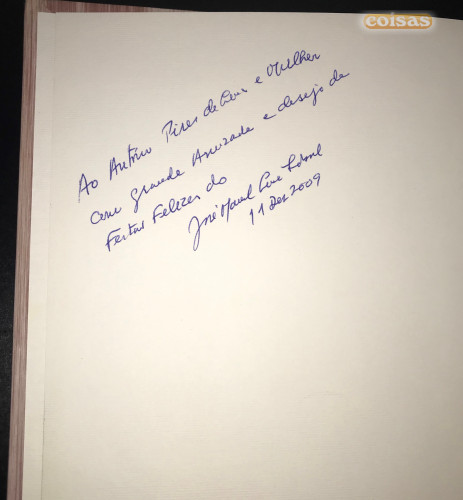 coisas
Ao António Pires de Lima e Mulher
com grande Amizade e desejo de
Festas Felizes do
José Manuel
11 Dez 2009